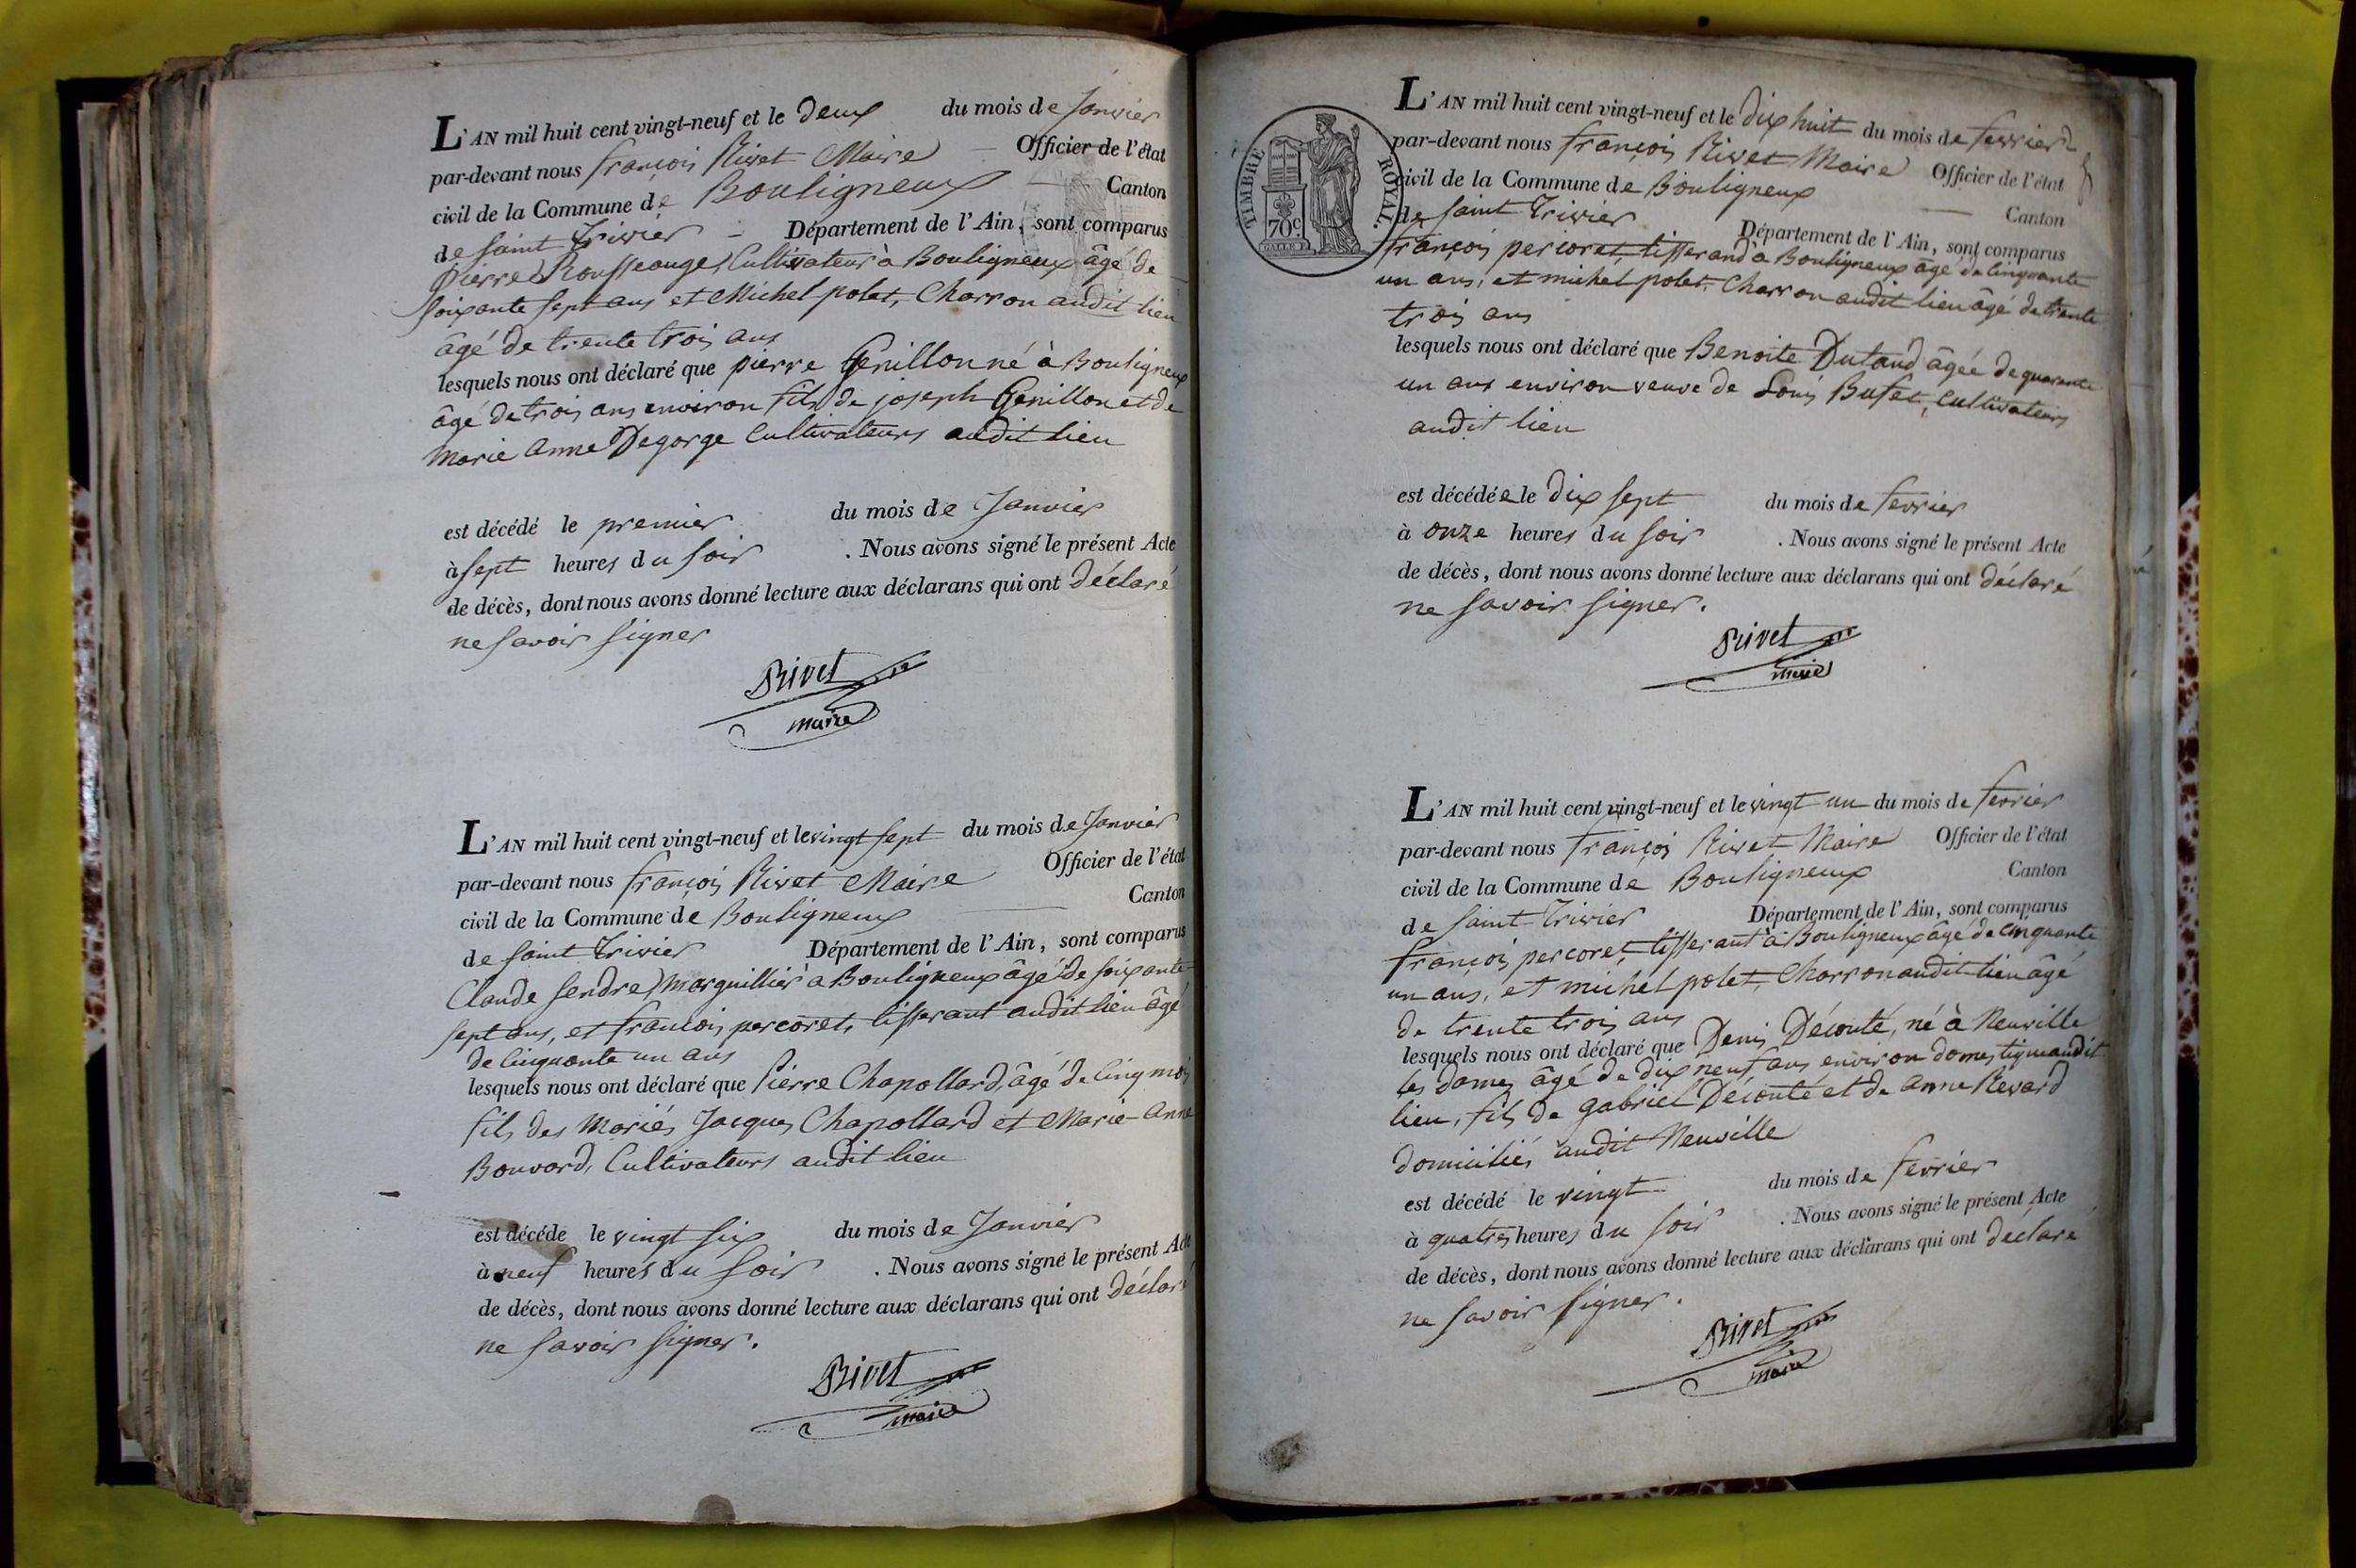 L'AN mil huit cent vingt-neuf et le deux du mois de Janvier
par-devant nous françois Rivet Maire Officier de l'état
civil de la Commune de Bouligneux Canton
de saint Trivier Département de l'Ain, sont comparus
pierre Cultivateur à Bouligneux âgé de
soixante sept ans et Michel polet, Charron audit lieu
âgé de trente trois ans
lesquels nous ont déclaré que pierre Genillon né à Bouligneux
âgé de trois ans environ fils de joseph Genillon et de
Marie Anne Degorge Cultivateurs audit lieu
est décédé le premier du mois de Janvier
à sept heures du soir . Nous avons signé le présent Acte
de décès, dont nous avons donné lecture aux déclarans qui ont déclaré
ne savoir signer
Rivet
maire
L'AN mil huit cent vingt-neuf et le vingt sept du mois de Janvier
par-devant nous françois Rivet Maire Officier de l'état
civil de la Commune de Bouligneux Canton
de saint Trivier Département de l'Ain, sont comparus
Claude Sendre, Marguillier à Bouligneux âgé de soixante
sept ans, et françois percoret, tisserant audit lieu âgé
de cinquante un ans
lesquels nous ont déclaré que Pierre Chapollard, âgé de cinq mois
fils des Mariés Jacques Chapollard et Marie-Anne
Bouvard, Cultivateurs audit lieu
est décédé le vingt six du mois de Janvier
à neuf heures du soir . Nous avons signé le présent Acte
de décès, dont nous avons donné lecture aux déclarans qui ont déclaré
ne savoir signer.
Rivet
maire
TIMBRE ROYAL.
70c.
L'AN mil huit cent vingt-neuf et le dix huit du mois de fevrier
par-devant nous françois Rivet Maire Officier de l'état
civil de la Commune de Bouligneux Canton
de saint Trivier Département de l'Ain, sont comparus
françois percoret, tisserand à Bouligneux âgé de cinquante
un ans, et michel polet, Charron audit lieu âgé de trente
trois ans
lesquels nous ont déclaré que Benoite Dutaud âgée de quarante
un ans environ veuve de Louis Bufet, Cultivateurs
audit lieu
est décédée le dix sept du mois de fevrier
à onze heures du soir . Nous avons signé le présent Acte
de décès, dont nous avons donné lecture aux déclarans qui ont déclaré
ne savoir signer.
Rivet
maire
L'AN mil huit cent vingt-neuf et le vingt un du mois de fevrier
par-devant nous françois Rivet Maire Officier de l'état
civil de la Commune de Bouligneux Canton
de saint Trivier Département de l'Ain, sont comparus
françois percoret, tisserant à Bouligneux âgé de cinquante
un ans, et michel polet, Charron audit lieu âgé
de trente trois ans
lesquels nous ont déclaré que Denis Découté, né à Neuville
les Dames âgé de dix neuf ans environ domestique audit
lieu, fils de gabriel Découté et de Anne Revard
domiciliés audit Neuville
est décédé le vingt du mois de fevrier
à quatre heures du soir . Nous avons signé le présent Acte
de décès, dont nous avons donné lecture aux déclarans qui ont déclaré
ne savoir signer.
Rivet
maire